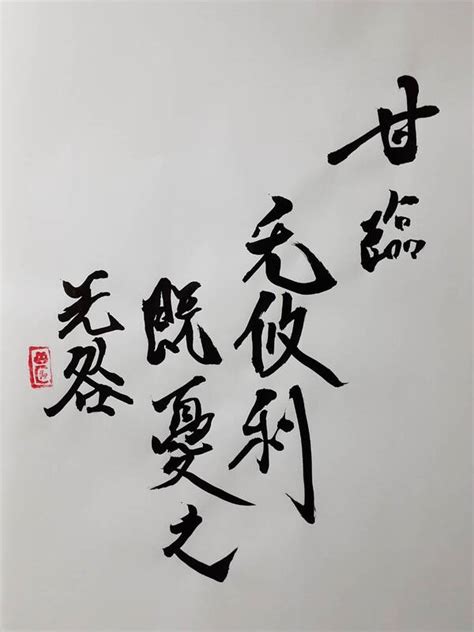 甘臨
无攸利
既憂之
无咎